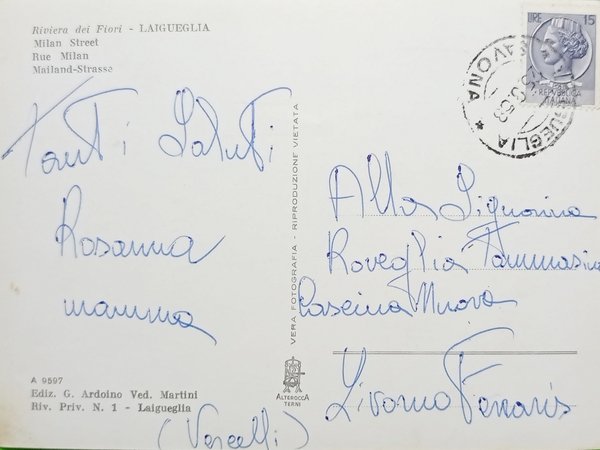 Riviera dei Fiori - LAIGUEGLIA
Milan Street
Rue Milan
Mailand-Strasse
LIRE 15
REPUBBLICA
ITALIANA
LAIGUEGLIA * SAVONA
Tanti Saluti
Rosanna
mamma
VERA FOTOGRAFIA - RIPRODUZIONE VIETATA
Alla Signorina
Roveglia Tommasina
Cascina Nuova
Livorno Ferraris
(Vercelli)
A 9597
Ediz. G. Ardoino Ved. Martini
Riv. Priv. N. 1 - Laigueglia
ALTEROCCA
TERNI